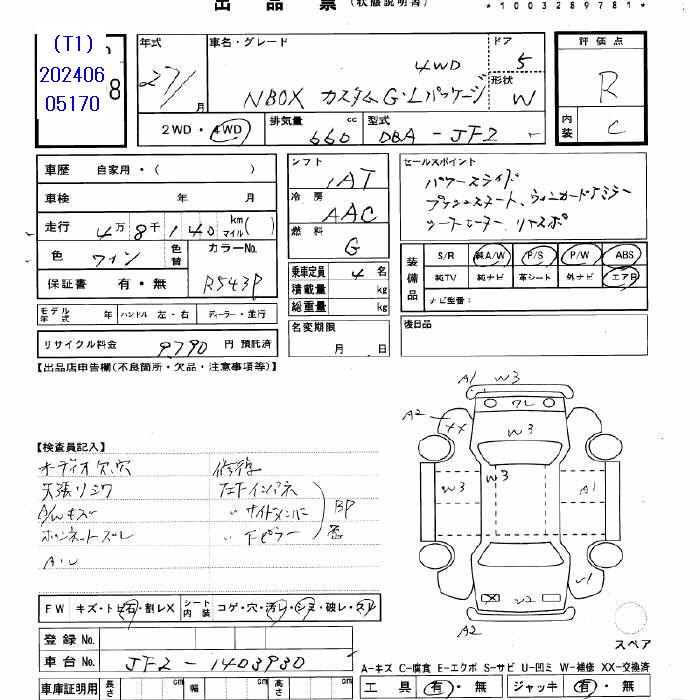 出品票 (状態説明書)
*1003289781*
(T1)
202406
05170
8
年式 27/ 月
車名・グレード ドア 5
4WD 形状 W
NBOX カスタムG・Lパッケージ
2WD・4WD 排気量 660 cc 型式 DBA-JF2
評価点 R
内装 C
車歴 自家用・( )
車検 年 月
走行 4万8千140 km マイル( )
色 ワイン 色替 カラーNo. R543P
保証書 有・無
モデル年式 年 ハンドル 左・右 ディーラー・並行
リサイクル料金 9790 円 預託済
シフト IAT
冷房 AAC
燃料 G
乗車定員 4 名
積載量 kg
総重量 kg
名変期限
月 日
セールスポイント
パワースライド
プッシュスタート、ウィンカードアミラー
シートヒーター、リヤスポ
装備品 S/R 純A/W P/S P/W ABS
純TV 純ナビ 革シート 外ナビ エアB
ナビ型番:
後日品
【出品店申告欄(不良箇所・欠品・注意事項等)】
【検査員記入】
オーディオ欠、穴 修復
天張リシワ
A/Wキズ サイドメンバー BP
ボンネットズレ Fピラー
A・U
A1 W3
A2 XX
フレ
W3
W3
W3
A1
U1
U2
A2
スペア
FW キズ・トビ石・割レX シート内装 コゲ・穴・汚レ・シミ・破レ・スレ
登録No.
車台No. JF2-1403930
車庫証明用 長さ cm 幅 cm 高さ cm
A-キズ C-腐食 E-エクボ S-サビ U-凹ミ W-補修 XX-交換済
工具 有・無 ジャッキ 有・無